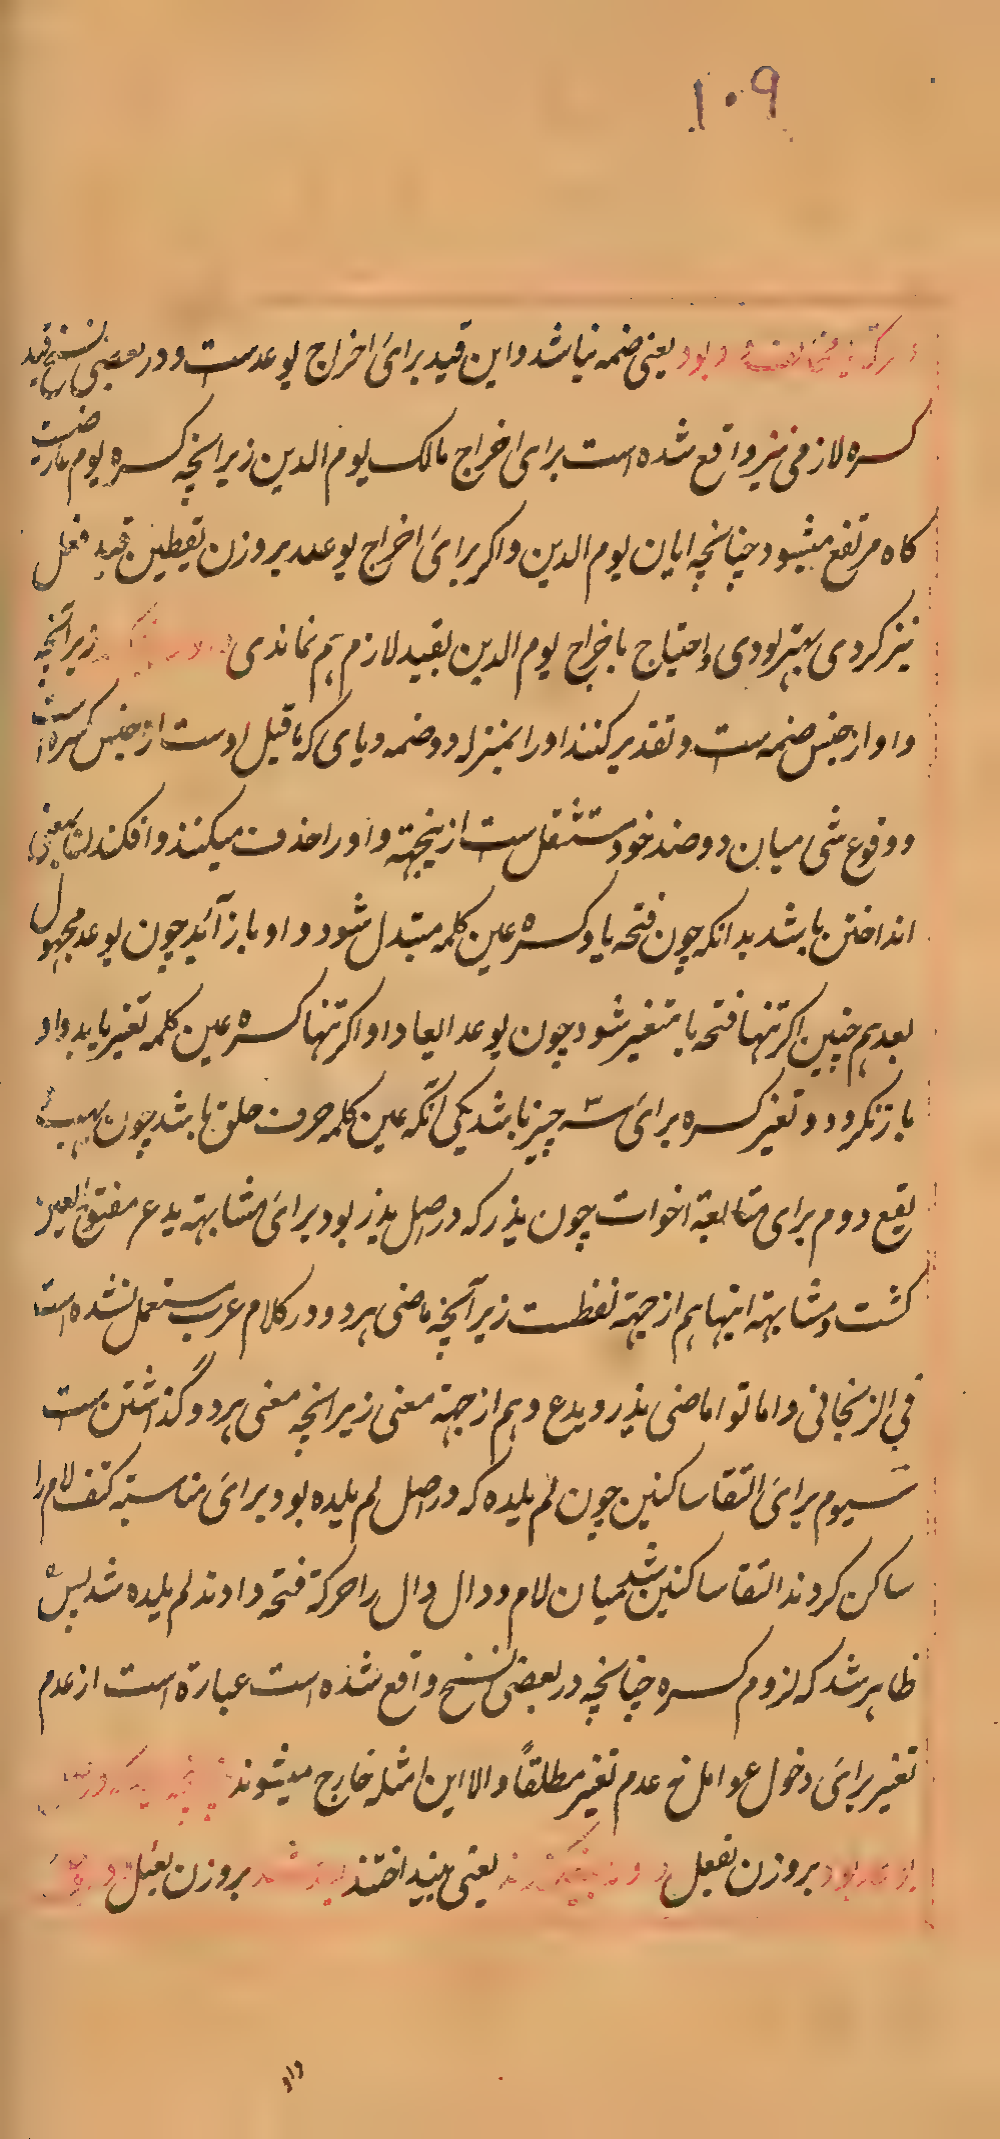 ۱۰۹
بود یعنی ضمه نباشد و این قید برای اخراج یوعدست و در بعضی نسخ قید
کسره لازمی نیز واقع شده است برای اخراج مالک یوم الدین زیرانچه کسره یوم
کاه مرتفع میشود چنانچه ایان یوم الدین و اکر برای اخراج یوعد بروزن یقطین قید فعل
نیز کردی بهتر بودی و احتیاج باخراج یوم الدین بقید لازم هم نماندی زیرآنچه
واو از جنس ضمه ست و تقدیر کنند او را بمنزله دو ضمه و یای که ماقبل اوست از جنس کسره است
و وقوع شی میان دو ضد خود مستثقل ست ازینجهته واو را حذف میکنند و افکندن بمعنی
انداختن باشد بدانکه چون فتحه یا و کسره عین کلمه مبتدل شود واو باز آید چون یوعد مجهول
یعد هم چنین اکر تنها فتحه یا متغیر شود چون یوعد ایعادا و اکر تنها کسره عین کلمه تغیر یابد واو
باز نکردد و تغیر کسره برای سه چیز باشد یکی آنکه عین کلمه حرف حلق باشد چون یهب
یقع دوم برای متابعة اخوات چون یذر که در اصل یذر بود برای مشابهته یدع مفتوح العین
کشت و مشابهته اینها هم از جهته لفظست زیرآنچه ماضی هر دو در کلام عرب مستعمل نشده است
فی الزنجانی و اماتوا ماضی یذر و یدع و هم از جهة معنی زیرانچه معنی هر دو گذاشتن ست
سیوم برای التقا ساکنین چون لم یلده که در اصل لم یلده بود برای مناسبته کتف لام را
ساکن کردند التقا ساکنین شد میان لام و دال دال را حرکة فتحه دادند لم یلده شد پس
ظاهر شد که لزوم کسره چنانچه در بعضی نسخ واقع شده است عبارة است از عدم
تغیر برای دخول عوامل نه عدم تغیر مطلقاً والا این امثله خارج میشوند
بود بروزن یفعل یعنی بیند اختند بروزن یعل
واو